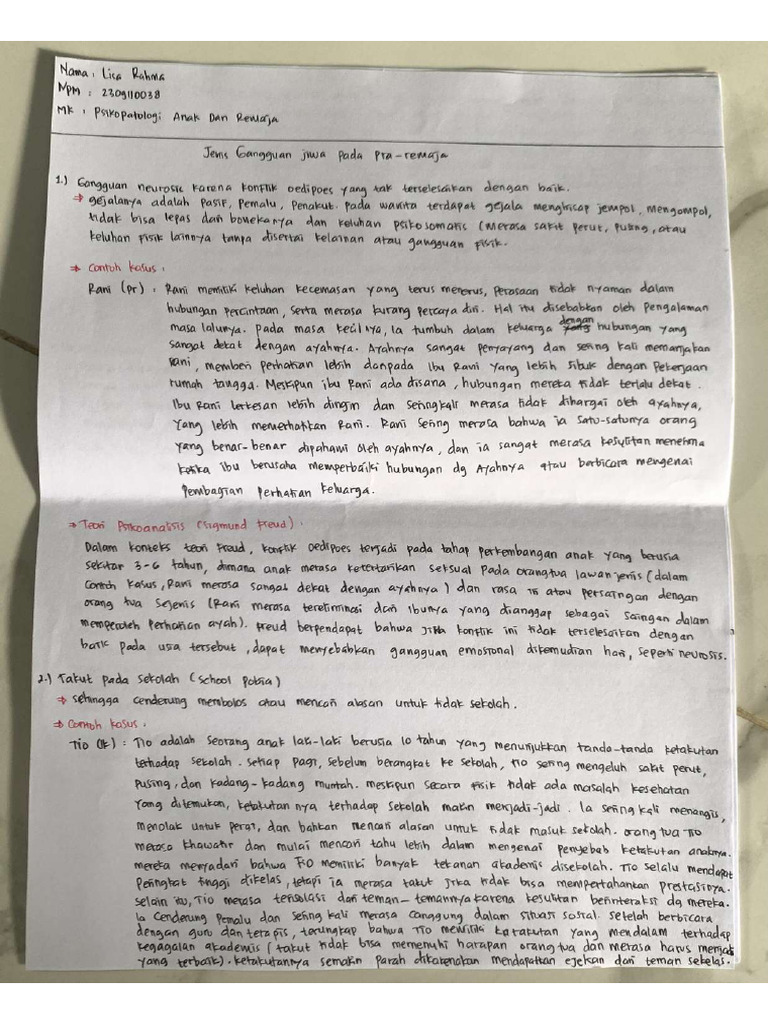 Nama : Lisa Rahma
NPM : 2309110038
MK : Psikopatologi Anak Dan Remaja
Jenis Gangguan jiwa pada Pra-remaja
1.) Gangguan neurosic karena konflik oedipoes yang tak terselesaikan dengan baik.
⇒ gejalanya adalah pasif, pemalu, penakut. pada wanita terdapat gejala menghisap jempol, mengompol,
tidak bisa lepas dari bonekanya dan keluhan psikosomatis (merasa sakit perut, pusing, atau
keluhan fisik lainnya tanpa disertai kelainan atau gangguan fisik.
⇒ Contoh kasus :
Rani (pr) : Rani memiliki keluhan kecemasan yang terus menerus, perasaan tidak nyaman dalam
hubungan percintaan, serta merasa kurang percaya diri. Hal itu disebabkan oleh pengalaman
masa lalunya. pada masa kecilnya, ia tumbuh dalam keluarga dengan hubungan yang
sangat dekat dengan ayahnya. Ayahnya sangat penyayang dan sering kali memanjakan
Rani, memberi perhatian lebih daripada Ibu Rani yang lebih sibuk dengan pekerjaan
rumah tangga. Meskipun ibu Rani ada disana, hubungan mereka tidak terlalu dekat.
Ibu Rani terkesan lebih dingin dan seringkali merasa tidak dihargai oleh ayahnya,
yang lebih memerhatikan Rani. Rani sering merasa bahwa ia satu-satunya orang
yang benar-benar dipahami oleh ayahnya, dan ia sangat merasa kesulitan menerima
ketika ibu berusaha memperbaiki hubungan dg Ayahnya atau berbicara mengenai
pembagian perhatian keluarga.
⇒ Teori Psikoanalisis (Sigmund Freud) :
Dalam konteks teori Freud, konflik oedipoes terjadi pada tahap perkembangan anak yang berusia
sekitar 3-6 tahun, dimana anak merasa ketertarikan seksual pada orangtua lawan jenis (dalam
contoh kasus, Rani merasa sangat dekat dengan ayahnya) dan rasa iri atau persaingan dengan
orang tua sejenis (Rani merasa tereliminasi dari Ibunya yang dianggap sebagai saingan dalam
memperoleh perhatian ayah). Freud berpendapat bahwa jika konflik ini tidak terselesaikan dengan
baik pada usia tersebut, dapat menyebabkan gangguan emosional dikemudian hari, seperti neurosis.
2.) Takut pada sekolah (School Pobia)
⇒ sehingga cenderung membolos atau mencari alasan untuk tidak sekolah.
⇒ Contoh kasus :
Tio (lk) : Tio adalah seorang anak laki-laki berusia 10 tahun yang menunjukkan tanda-tanda ketakutan
terhadap sekolah. setiap pagi, sebelum berangkat ke sekolah, Tio sering mengeluh sakit perut,
pusing, dan kadang-kadang muntah. meskipun secara fisik tidak ada masalah kesehatan
yang ditemukan, ketakutannya terhadap sekolah makin menjadi-jadi. Ia sering kali menangis,
menolak untuk pergi, dan bahkan mencari alasan untuk tidak masuk sekolah. orang tua Tio
merasa khawatir dan mulai mencari tahu lebih dalam mengenai penyebab ketakutan anaknya.
mereka menyadari bahwa Tio memiliki banyak tekanan akademis disekolah. Tio selalu mendapat
peringkat tinggi dikelas, tetapi ia merasa takut jika tidak bisa mempertahankan prestasinya.
selain itu, Tio merasa terisolasi dari teman-temannya karena kesulitan berinteraksi dg mereka.
Ia cenderung pemalu dan sering kali merasa canggung dalam situasi sosial. setelah berbicara
dengan guru dan terapis, terungkap bahwa Tio memiliki ketakutan yang mendalam terhadap
kegagalan akademis (takut tidak bisa memenuhi harapan orang tua dan merasa harus menjadi
yang terbaik). ketakutannya semakin parah dikarenakan mendapatkan ejekan dari teman sekelas.